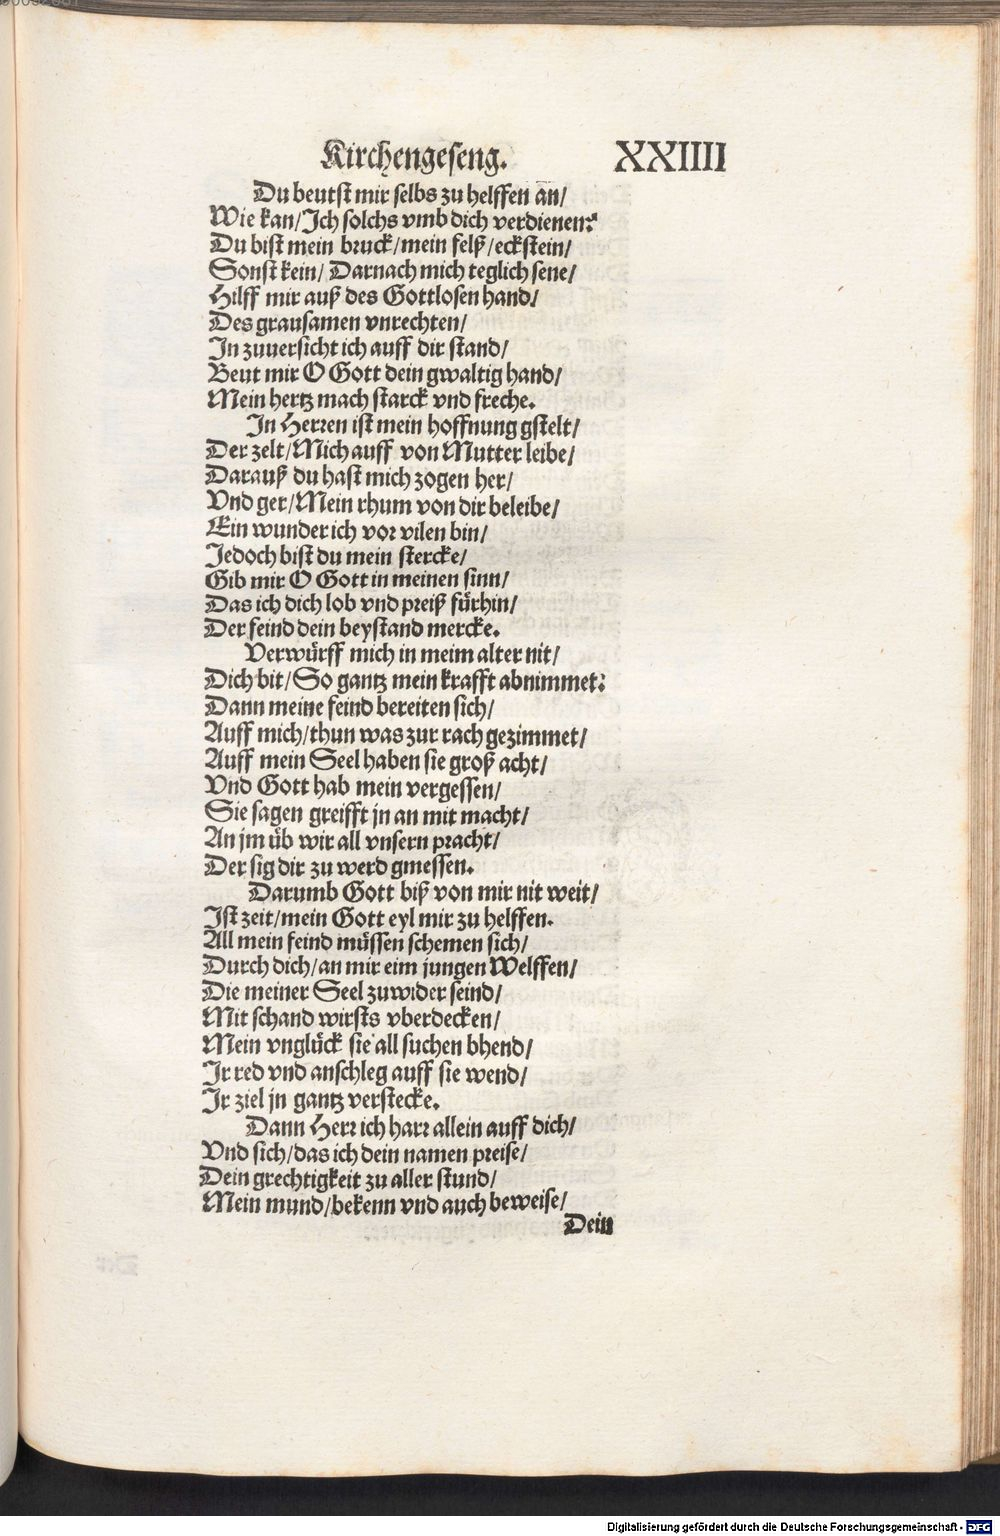 Kirchengeseng. XXIIII
Du beutst mir selbs zu helffen an/
Wie kan/Ich solchs vmb dich verdienen?
Du bist mein bruck/mein felß/eckstein/
Sonst kein/ Darnach mich teglich sene/
Hilff mir auß des Gottlosen hand/
Des grausamen vnrechten/
In zuuersicht ich auff dir stand/
Beut mir O Gott dein gwaltig hand/
Mein hertz mach starck vnd freche.
In Herren ist mein hoffnung gstelt/
Der zelt/Mich auff von Mutter leibe/
Darauß du hast mich zogen her/
Vnd ger/Mein rhum von dir beleibe/
Ein wunder ich vor vilen bin/
Jedoch bist du mein stercke/
Gib mir O Gott in meinen sinn/
Das ich dich lob vnd preiß fürhin/
Der feind dein beystand mercke.
Verwürff mich in meim alter nit/
Dich bit/So gantz mein krafft abnimmet:
Dann meine feind bereiten sich/
Auff mich/thun was zur rach gezimmet/
Auff mein Seel haben sie groß acht/
Vnd Gott hab mein vergessen/
Sie sagen greifft jn an mit macht/
An jm üb wir all vnsern pracht/
Der sig dir zu werd gmessen.
Darumb Gott biß von mir nit weit/
Ist zeit/mein Gott eyl mir zu helffen.
All mein feind müssen schemen sich/
Durch dich/an mir eim jungen Welffen/
Die meiner Seel zuwider seind/
Mit schand wirsts vberdecken/
Mein vnglück sie all suchen bhend/
Ir red vnd anschleg auff sie wend/
Ir ziel jn gantz verstecke.
Dann Herr ich harr allein auff dich/
Vnd sich/das ich dein namen preise/
Dein grechtigkeit zu aller stund/
Mein mund/bekenn vnd auch beweise/
Dein
Digitalisierung gefördert durch die Deutsche Forschungsgemeinschaft - DFG